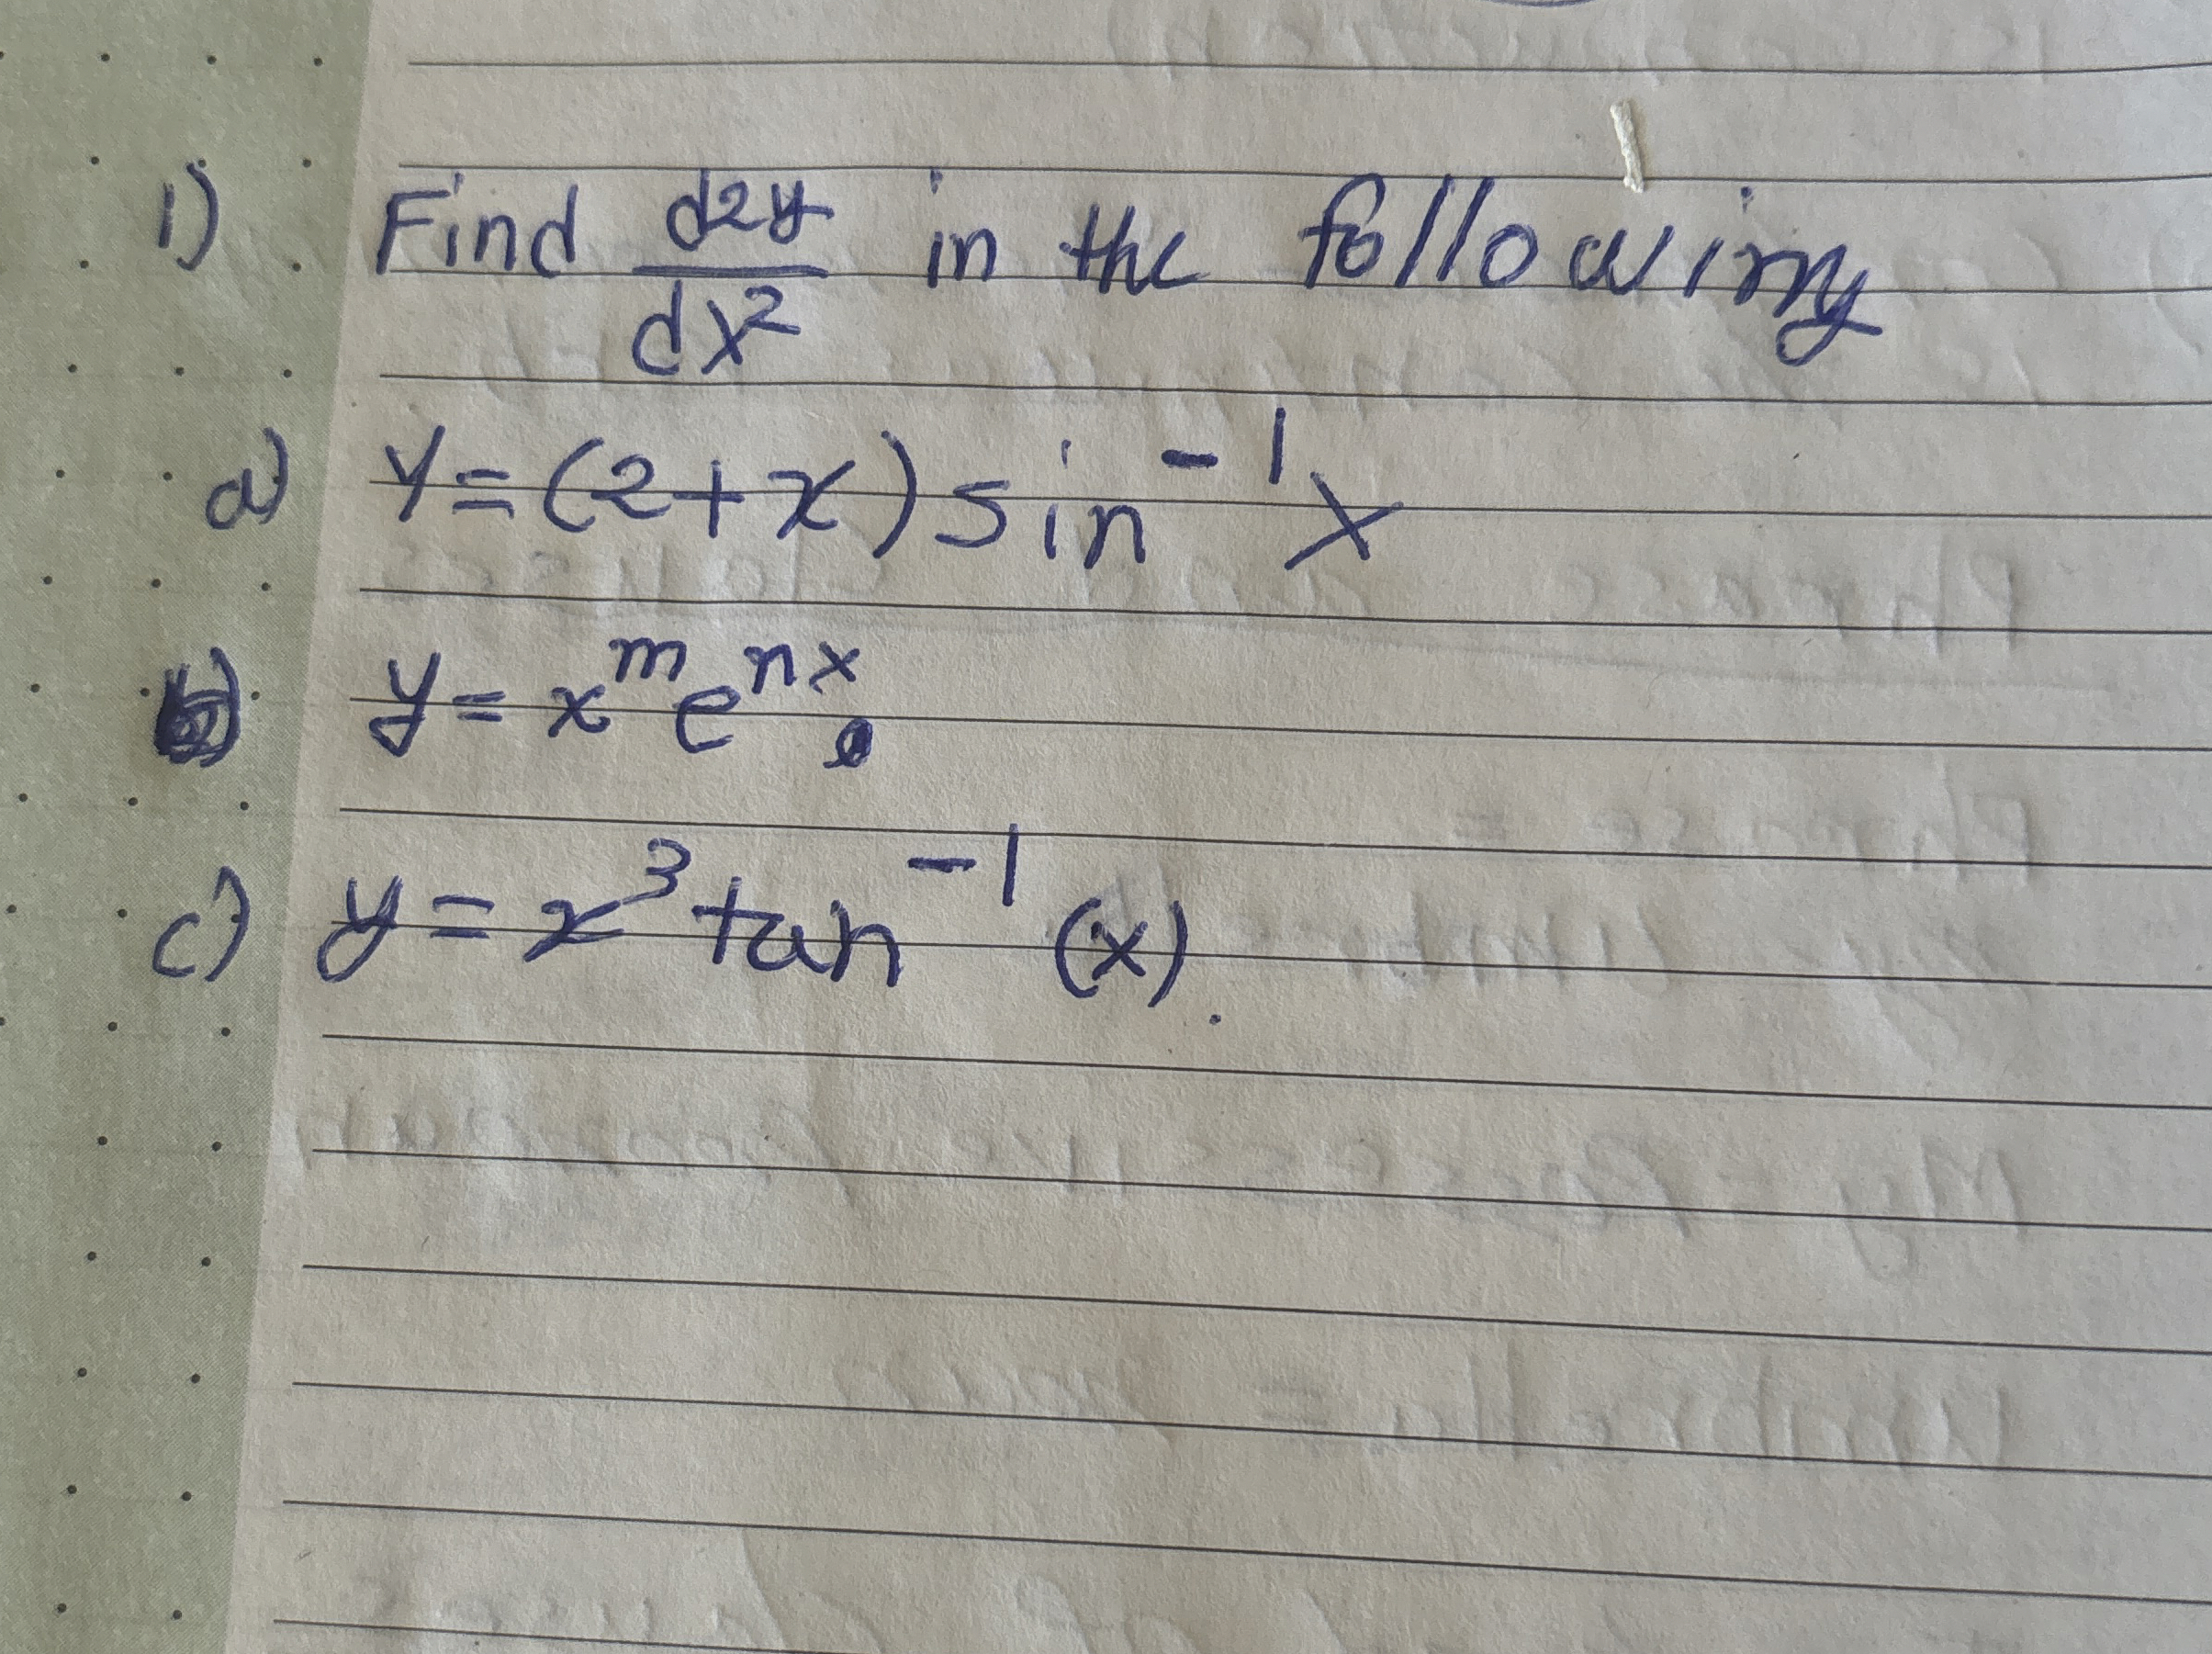 1) Find d2y/dx² in the following
a) y=(2+x)sin⁻¹x
b) y=xᵐeⁿˣ.
c) y=x³tan⁻¹(x).